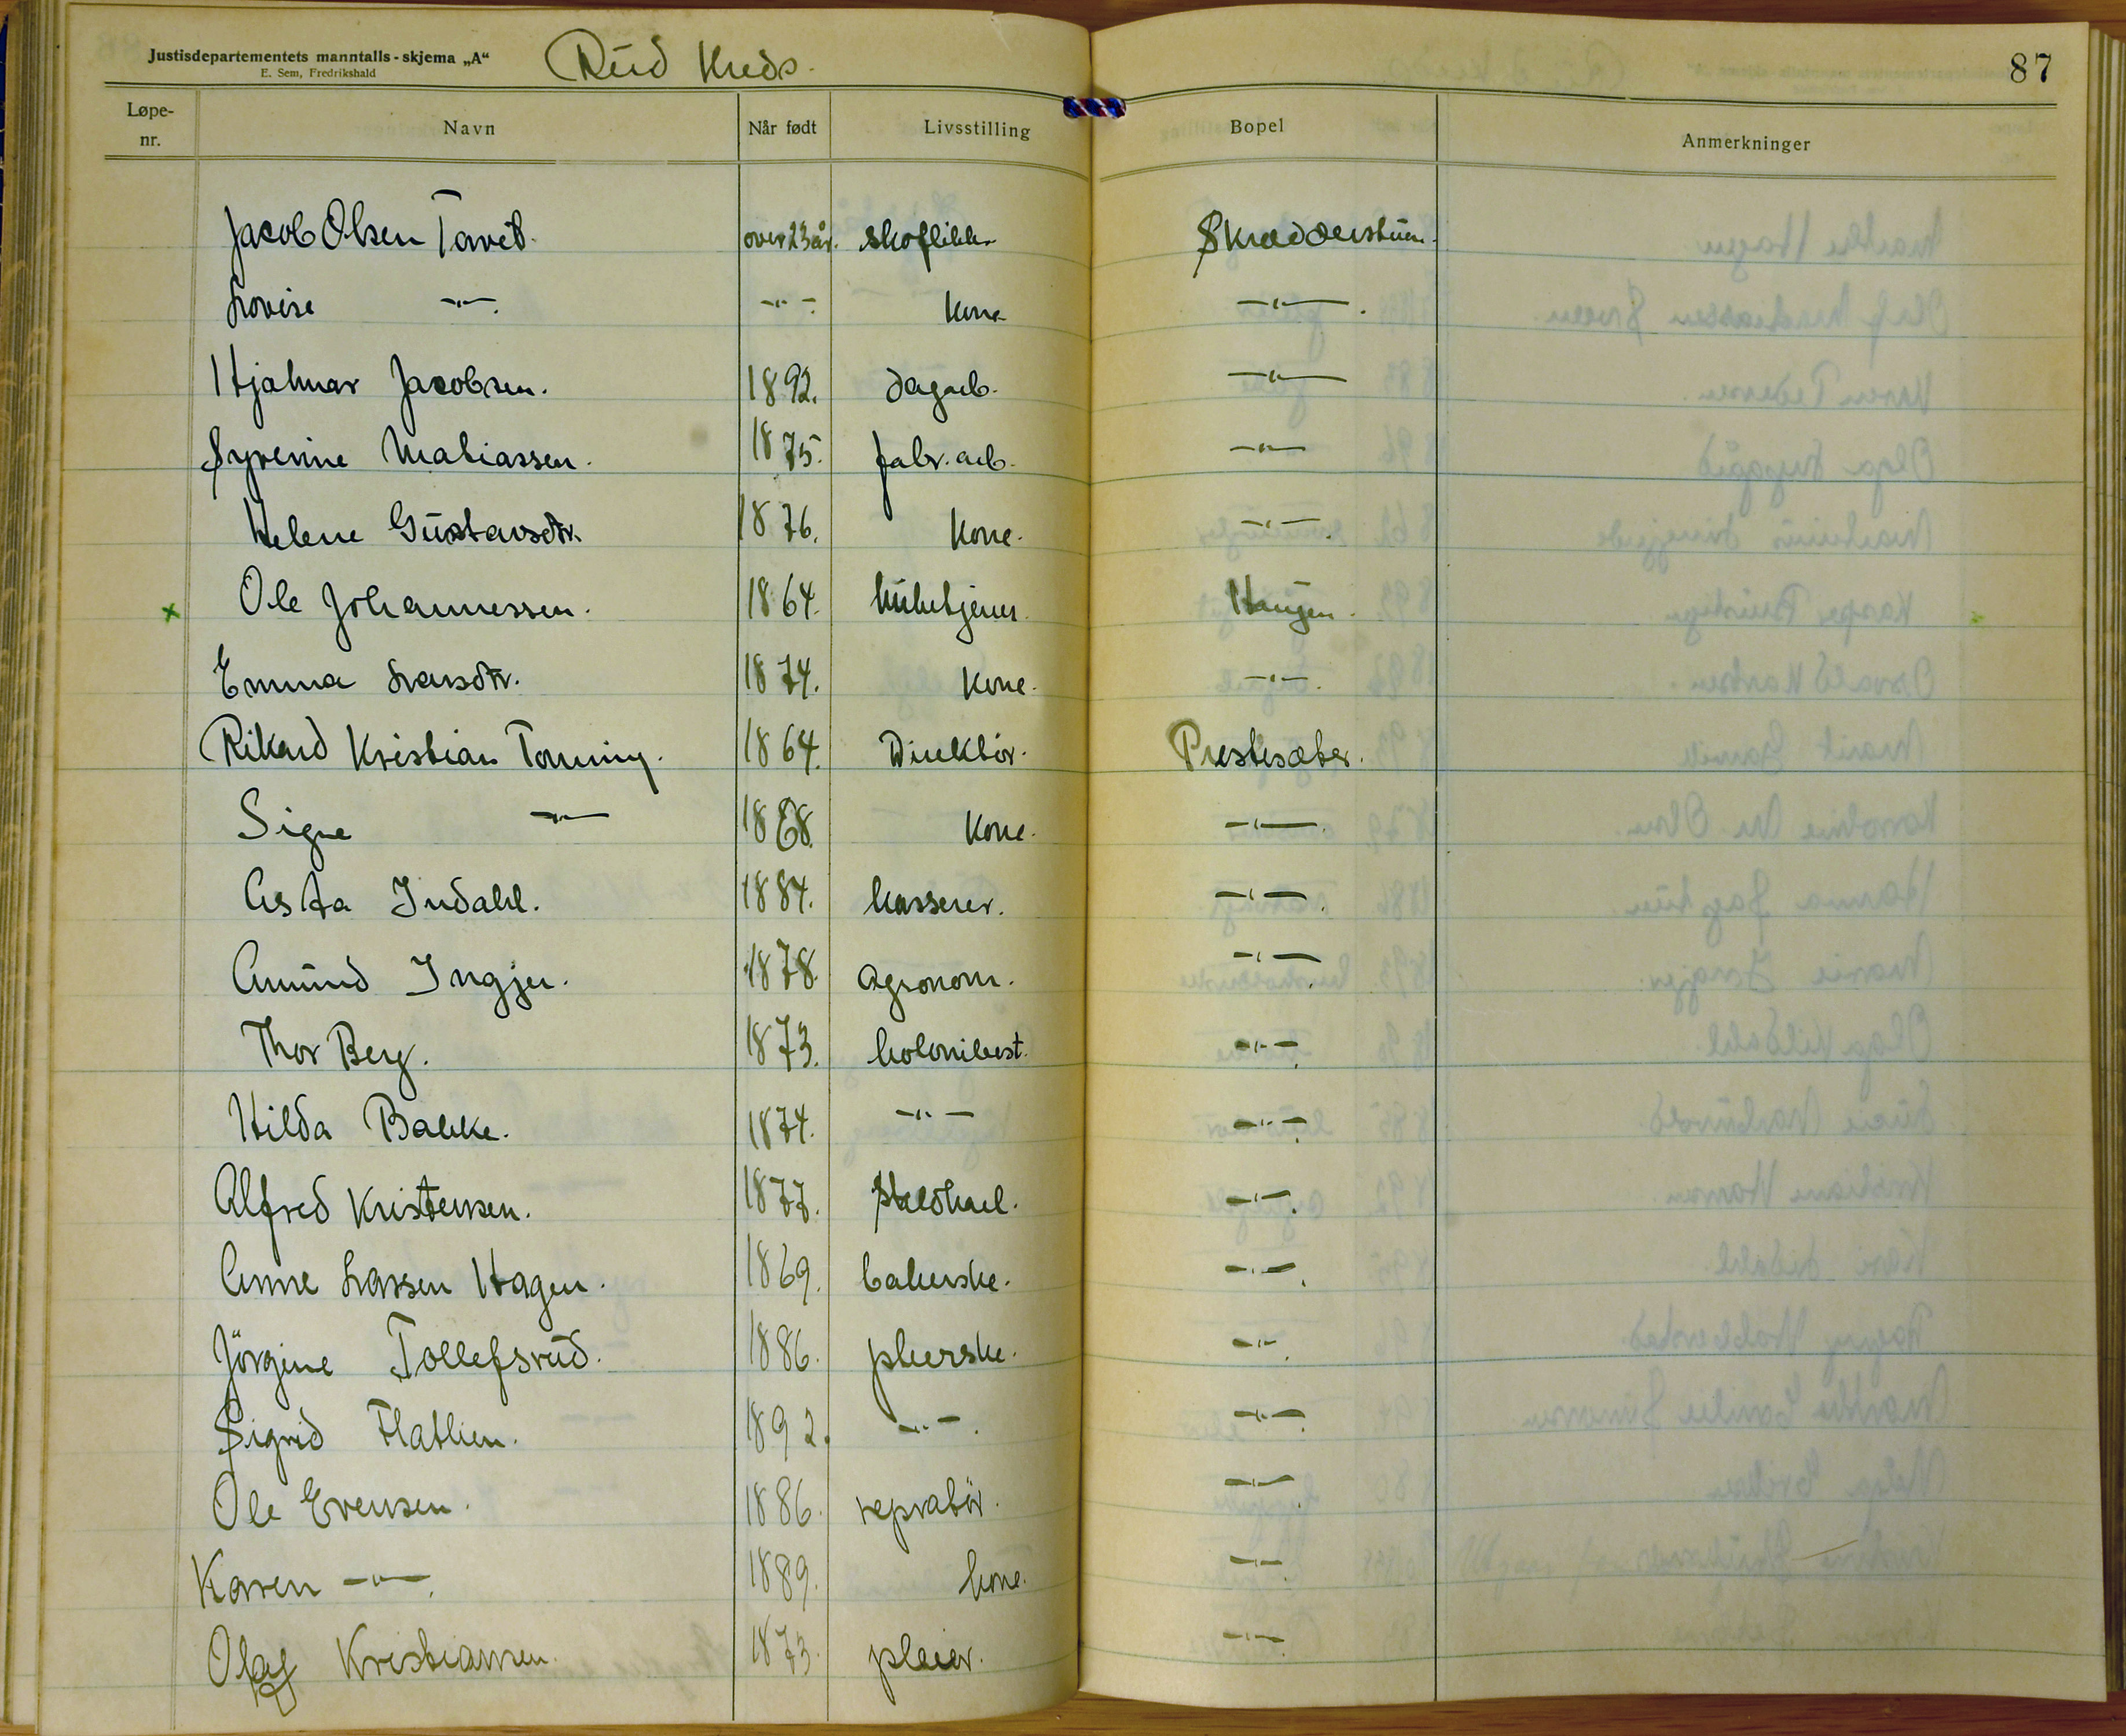 Justisdepartementets manntalls-skjema „A“
E. Sem, Fredrikshald
Rud Kreds.
87
Løpe-nr. Navn Når født Livsstilling Bopel Anmerkninger
Jacob Olsen Tavet. over 23 år. skoflikker Skrædderstuen.
Lovise —"—. —"—. Kone —"—.
Hjalmar Jacobsen. 1892. dagarb. —"—
Syverine Matiassen. 1875. fabr. arb. —"—
Helene Gustavsdtr. 1876. Kone. —"—.
x Ole Johannessen. 1864. kirketjener. Haugen.
Emma Larsdtr. 1874. Kone. —"—.
Rikard Kristian Tonning. 1864. Direktør. Prestesæter.
Signe —"— 1868. Kone. —"—.
Asta Indahl. 1884. kasserer. —"—.
Amund Ingjer. 1878. agronom. —"—.
Thor Berg. 1873. kolonibest. —"—.
Hilda Bakke. 1874. —"— —"—.
Alfred Kristensen. 1877. staldkarl. —"—.
Anne Larssen Hagen. 1869. bakerske. —"—.
Jörgine Tollefsrud. 1886. pleierske. —"—.
Sigrid Flatlien. 1892. —"—. —"—.
Ole Evensen. 1886. repratör. —"—.
Karen —"—. 1889. kone. —"—.
Olaf Kristiansen. 1873. pleier. —"—.